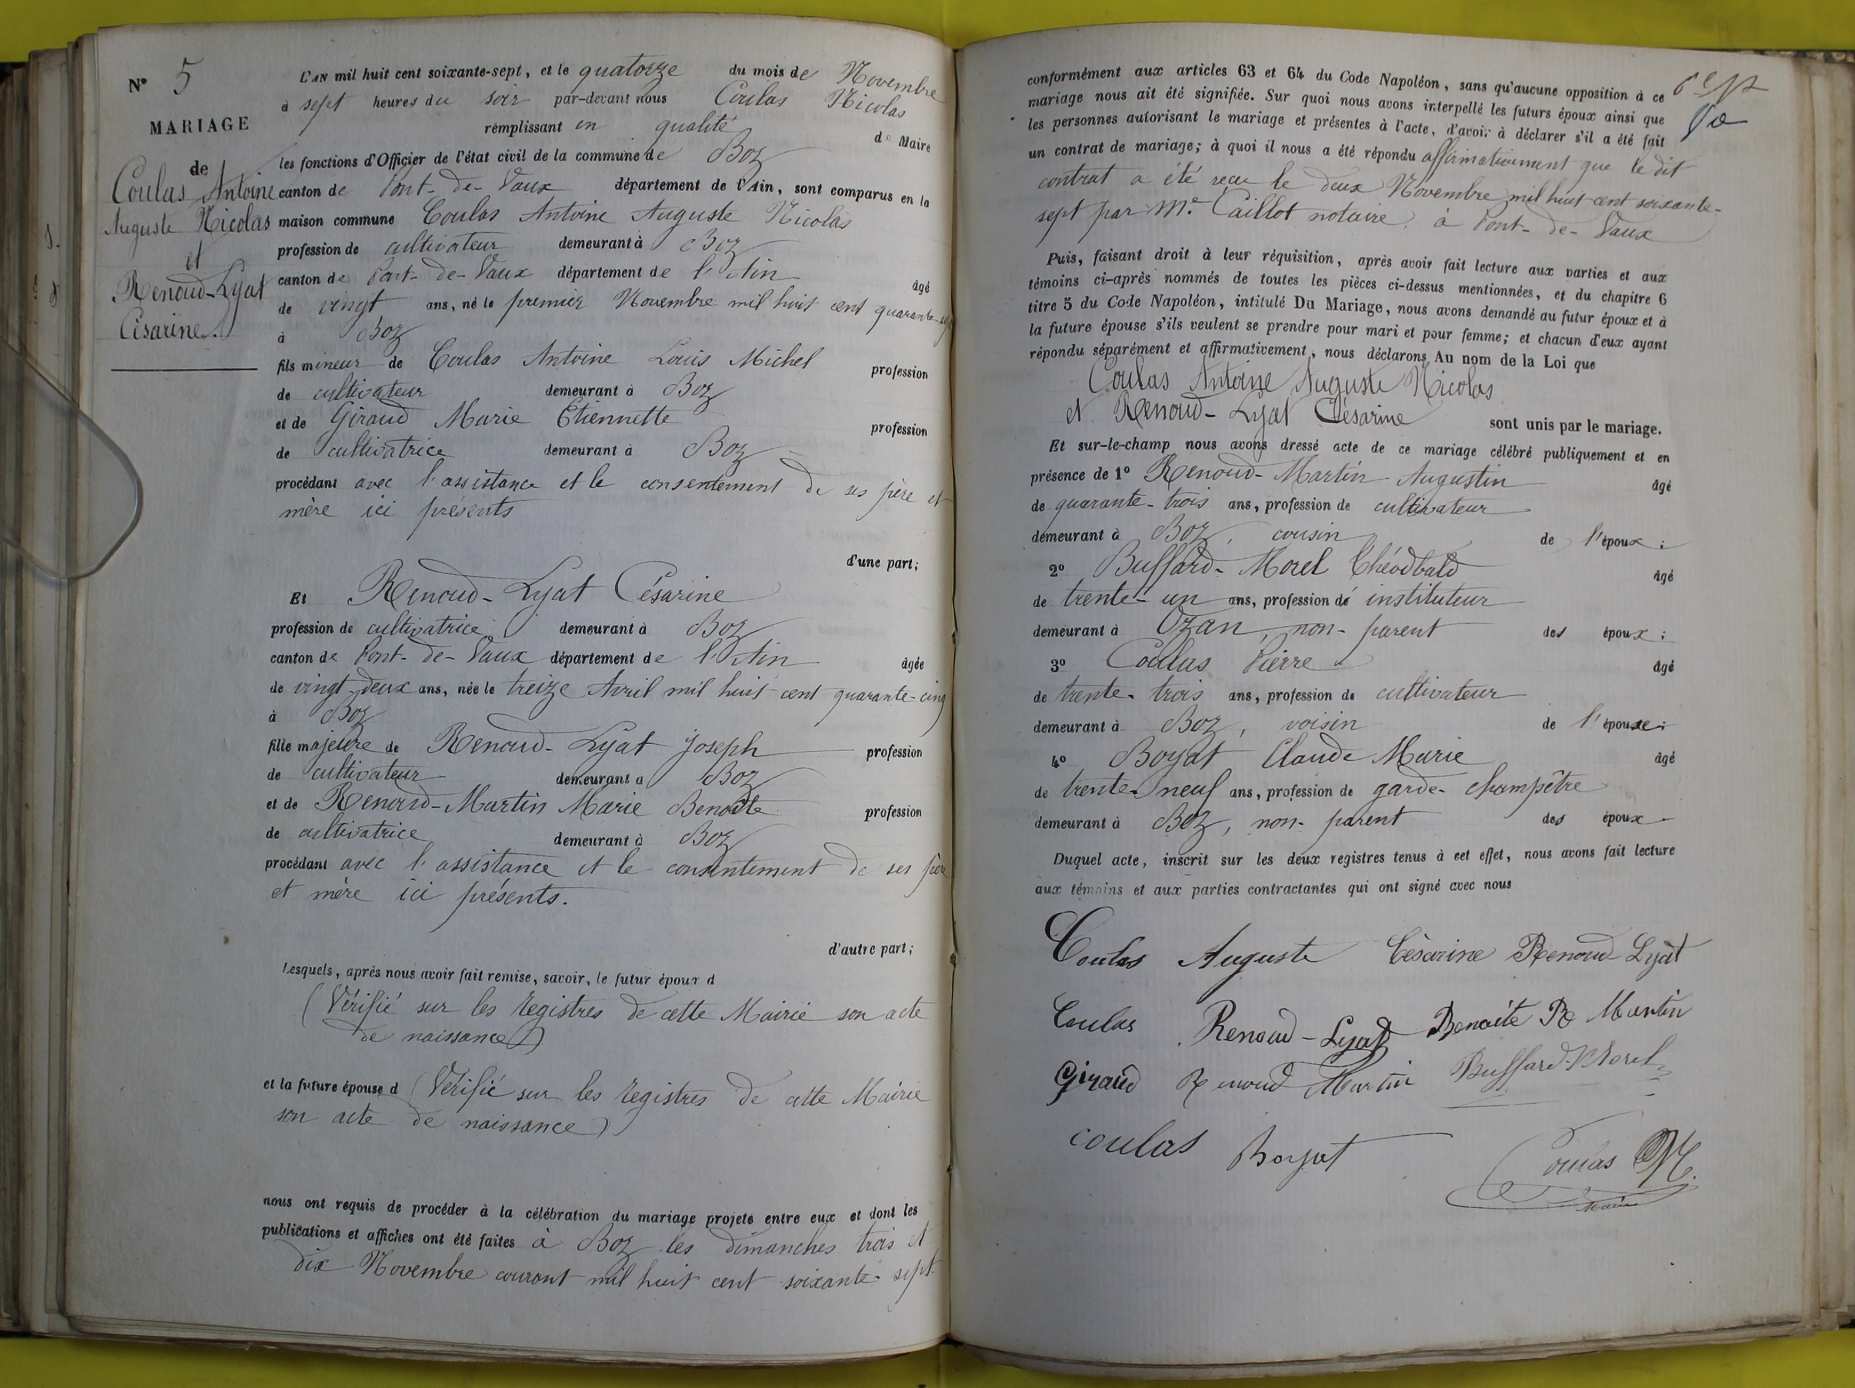 N° 5
MARIAGE
de
Coulas Antoine
Auguste Nicolas
et
Renoud-Lyat
Césarine.
L'AN mil huit cent soixante-sept, et le quatorze du mois de Novembre
à sept heures du soir par-devant nous Coulas Nicolas
remplissant en qualité de Maire
les fonctions d'Officier de l'état civil de la commune de Boz
canton de Pont-de-Vaux département de l'Ain, sont comparus en la
maison commune Coulas Antoine Auguste Nicolas
profession de cultivateur demeurant à Boz
canton de Pont-de-Vaux département de l'Ain âgé
de vingt ans, né le premier Novembre mil huit cent quarante-sept
à Boz
fils mineur de Coulas Antoine Louis Michel profession
de cultivateur demeurant à Boz
et de Giraud Marie Etiennette profession
de cultivatrice demeurant à Boz
procédant avec l'assistance et le consentement de ses père et
mère ici présents
d'une part;
Et Renoud-Lyat Césarine
profession de cultivatrice demeurant à Boz
canton de Pont-de-Vaux département de l'Ain âgée
de vingt deux ans, née le treize Avril mil huit cent quarante-cinq
à Boz
fille majeure de Renoud-Lyat Joseph profession
de cultivateur demeurant à Boz
et de Renoud-Martin Marie Benoite profession
de cultivatrice demeurant à Boz
procédant avec l'assistance et le consentement de ses père
et mère ici présents.
d'autre part;
Lesquels, après nous avoir fait remise, savoir, le futur époux d
(Vérifié sur les registres de cette Mairie son acte
de naissance)
et la future épouse d (Vérifié sur les registres de cette Mairie
son acte de naissance)
nous ont requis de procéder à la célébration du mariage projeté entre eux et dont les
publications et affiches ont été faites à Boz les dimanches trois et
dix Novembre courant mil huit cent soixante-sept
conformément aux articles 63 et 64 du Code Napoléon, sans qu'aucune opposition à ce
mariage nous ait été signifiée. Sur quoi nous avons interpellé les futurs époux ainsi que
les personnes autorisant le mariage et présentes à l'acte, d'avoir à déclarer s'il a été fait
un contrat de mariage; à quoi il nous a été répondu affirmativement que le dit
contrat a été reçu le deux Novembre mil huit cent soixante-
sept par Me Caillot notaire à Pont-de-Vaux
Puis, faisant droit à leur réquisition, après avoir fait lecture aux parties et aux
témoins ci-après nommés de toutes les pièces ci-dessus mentionnées, et du chapitre 6
titre 5 du Code Napoléon, intitulé Du Mariage, nous avons demandé au futur époux et à
la future épouse s'ils veulent se prendre pour mari et pour femme; et chacun d'eux ayant
répondu séparément et affirmativement, nous déclarons Au nom de la Loi que
Coulas Antoine Auguste Nicolas
et Renoud-Lyat Césarine sont unis par le mariage.
Et sur-le-champ nous avons dressé acte de ce mariage célébré publiquement et en
présence de 1° Renoud-Martin Augustin âgé
de quarante-trois ans, profession de cultivateur
demeurant à Boz, cousin de l'époux;
2° Buffard-Morel Théodbald âgé
de trente-un ans, profession de instituteur
demeurant à Ozan, non-parent des époux;
3° Coulas Pierre âgé
de trente-trois ans, profession de cultivateur
demeurant à Boz, voisin de l'épouse;
4° Boyat Claude Marie âgé
de trente-neuf ans, profession de garde-champêtre
demeurant à Boz, non-parent des époux
Duquel acte, inscrit sur les deux registres tenus à cet effet, nous avons fait lecture
aux témoins et aux parties contractantes qui ont signé avec nous
Coulas Auguste Césarine Renoud Lyat
Coulas Renoud-Lyat Benoite R Martin
Giraud Renoud Martin Buffard-Morel
coulas Boyat Coulas N.
Maire